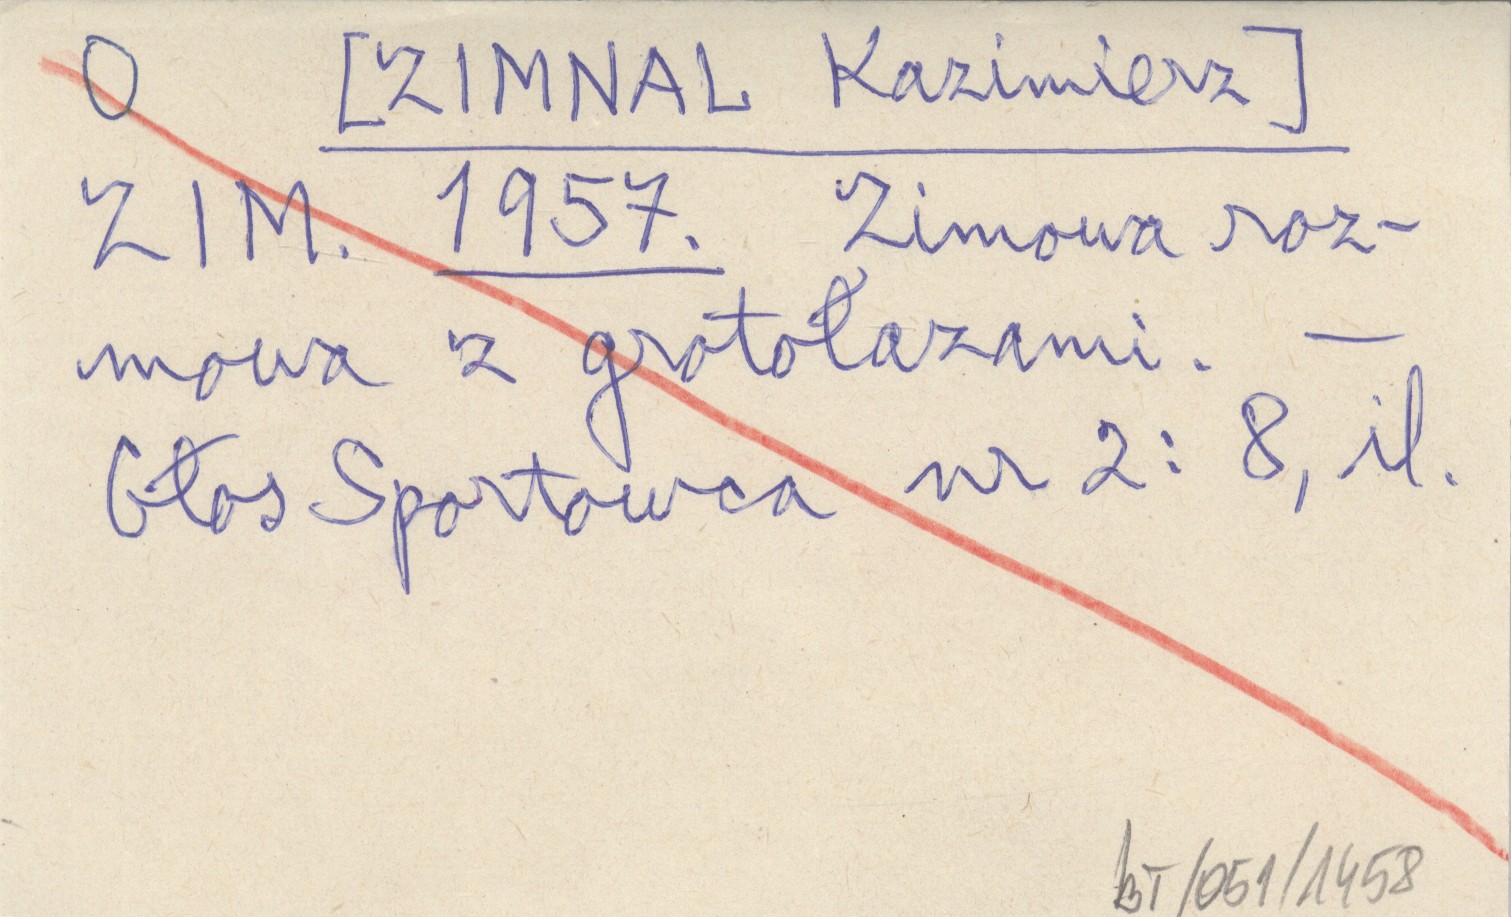 O [ZIMNAL Kazimierz]
ZIM. 1957. Zimowa roz-
mowa z grotołazami. —
Głos Sportowca nr 2: 8, il.
BT/051/1458